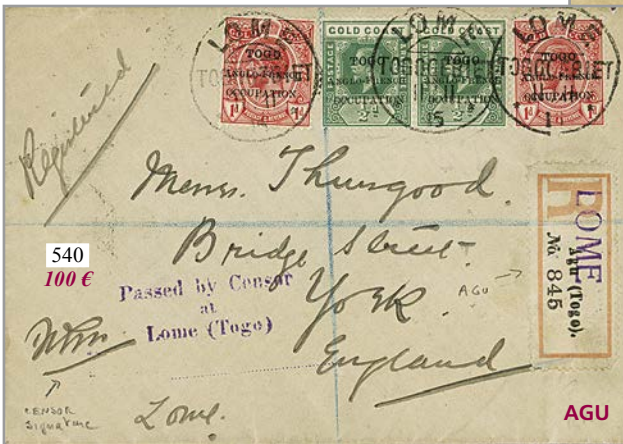 LOME
TOGOGEBIET
11 11
15
LOME
TOGOGEBIET
11 11
15
LOME
TOGOGEBIET
11 11
1
TOGO
ANGLO-FRENCH
OCCUPATION
1d 1d
GOLD COAST
POSTAGE
TOGO
ANGLO-FRENCH
OCCUPATION
½d
GOLD COAST
TOGO
ANGLO-FRENCH
OCCUPATION
½d
TOGO
ANGLO-FRENCH
OCCUPATION
1d 1d
Registered
Messrs. Thurgood.
Bridge Street
York.
England
540
100 €
Passed by Censor
at
Lome (Togo)
AGU →
R
LOME
Agu (Togo).
No 845
CENSOR
Signature
Lome.
AGU